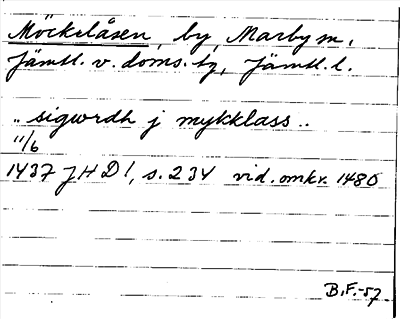 Möckelåsen, by, Marby sn,
Jämtl. v. doms. tg, Jämtl. l.
.. sigwrdh j mykklass ..
11/6
1437 JHD 1, s. 234 vid. omkr. 1480
B.F.-57